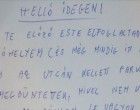 HELLÓ IDEGEN!
TE ELŐZŐ ESTE ELFOGLALTAD
HELYEM (ÉS MÉG MINDIG IT
AZ UTCÁN KELLETT PARK
MEGBÜNTETTEK, MIVEL NEM